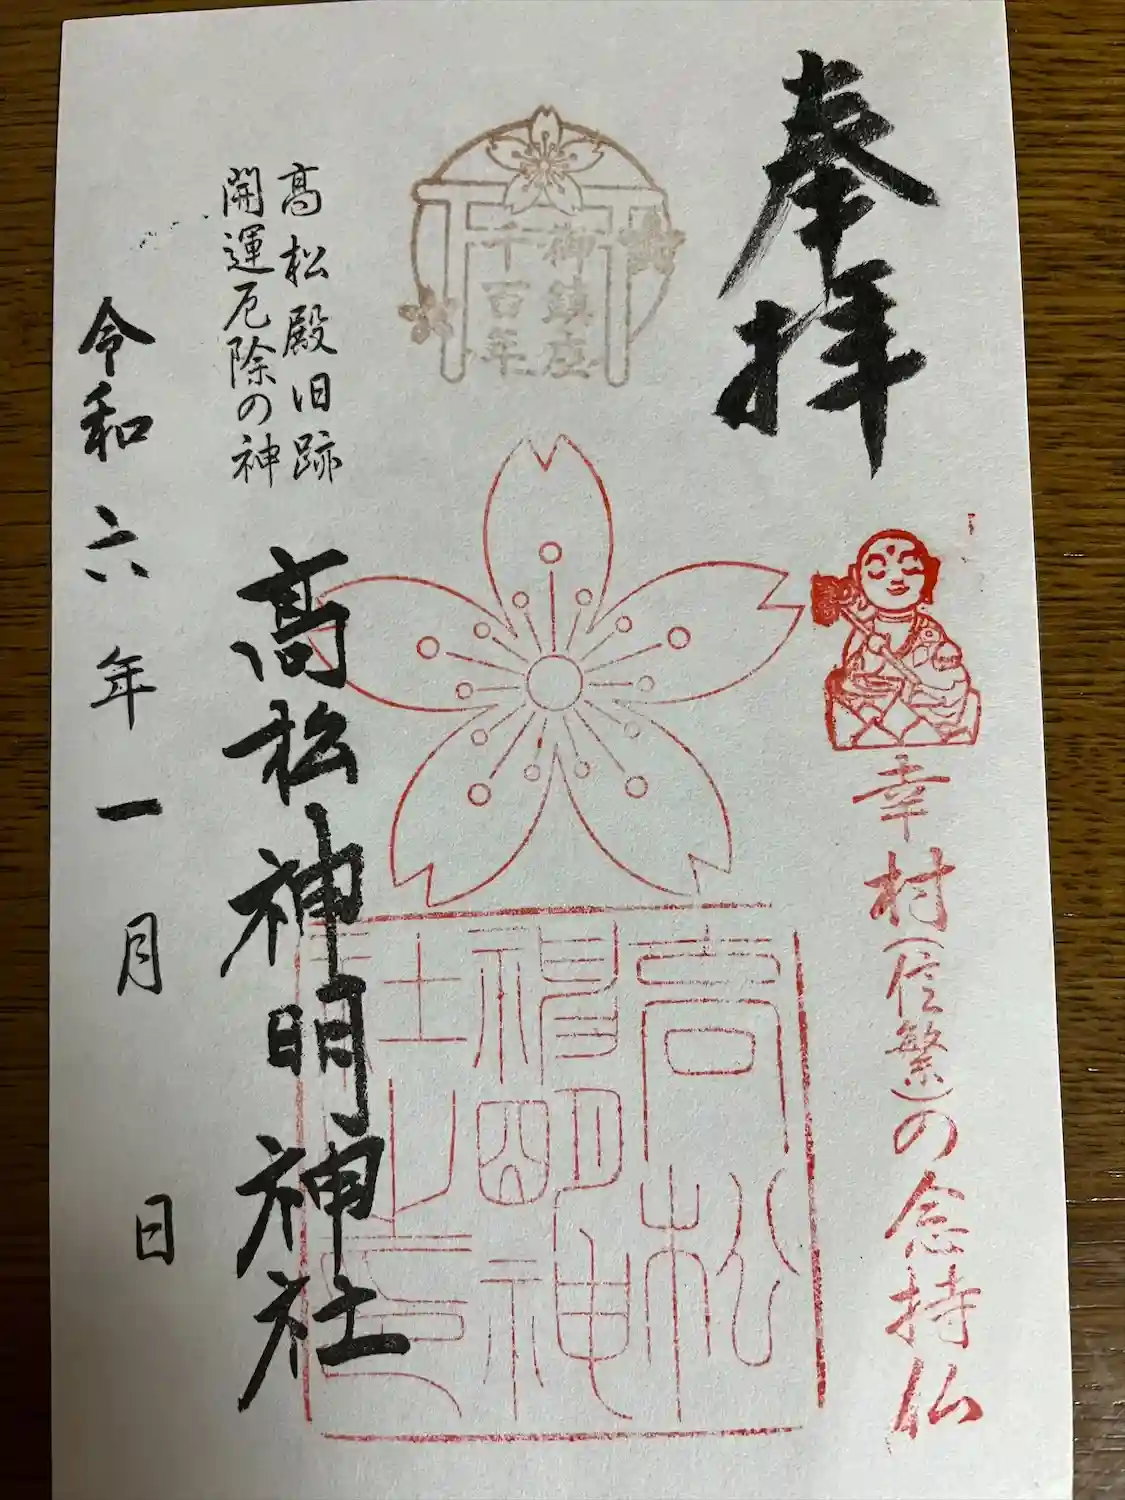 奉拝
幸村(信繁)の念持仏
御鎮座
千百年
高松
神明神
社之印
高松殿旧跡
開運厄除の神
高松神明神社
令和六年一月 日